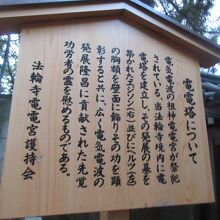 電電塔について
電気電波の祖神電電宮が奉祀
されている。当法輪寺境内に電
電塔を建立し、その発展の基を
築かれたエジソン(右)並びにヘルツ(左)
の胸額を壁面に飾りその功を顕
彰すると共に、広く電気電波の
発展隆昌に貢献された先覚
功労者の霊を慰めるものである。
法輪寺電電宮護持会